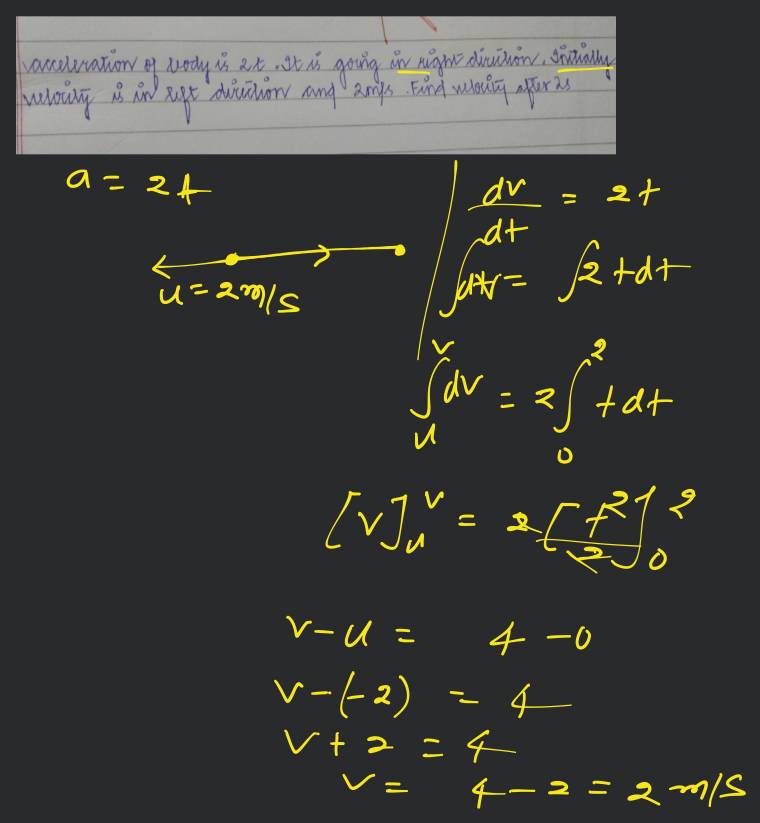 acceleration of body is 2t. It is going in right direction. Initially
velocity is in left direction and 2m/s. Find velocity after 2s
a = 2t
u = 2m/s
dv/dt = 2t
∫dv = ∫2tdt
∫_u^v dv = 2∫_0^2 tdt
[v]_u^v = 2[t^2/2]_0^2
v-u = 4-0
v-(-2) = 4
v+2 = 4
v = 4-2 = 2 m/s